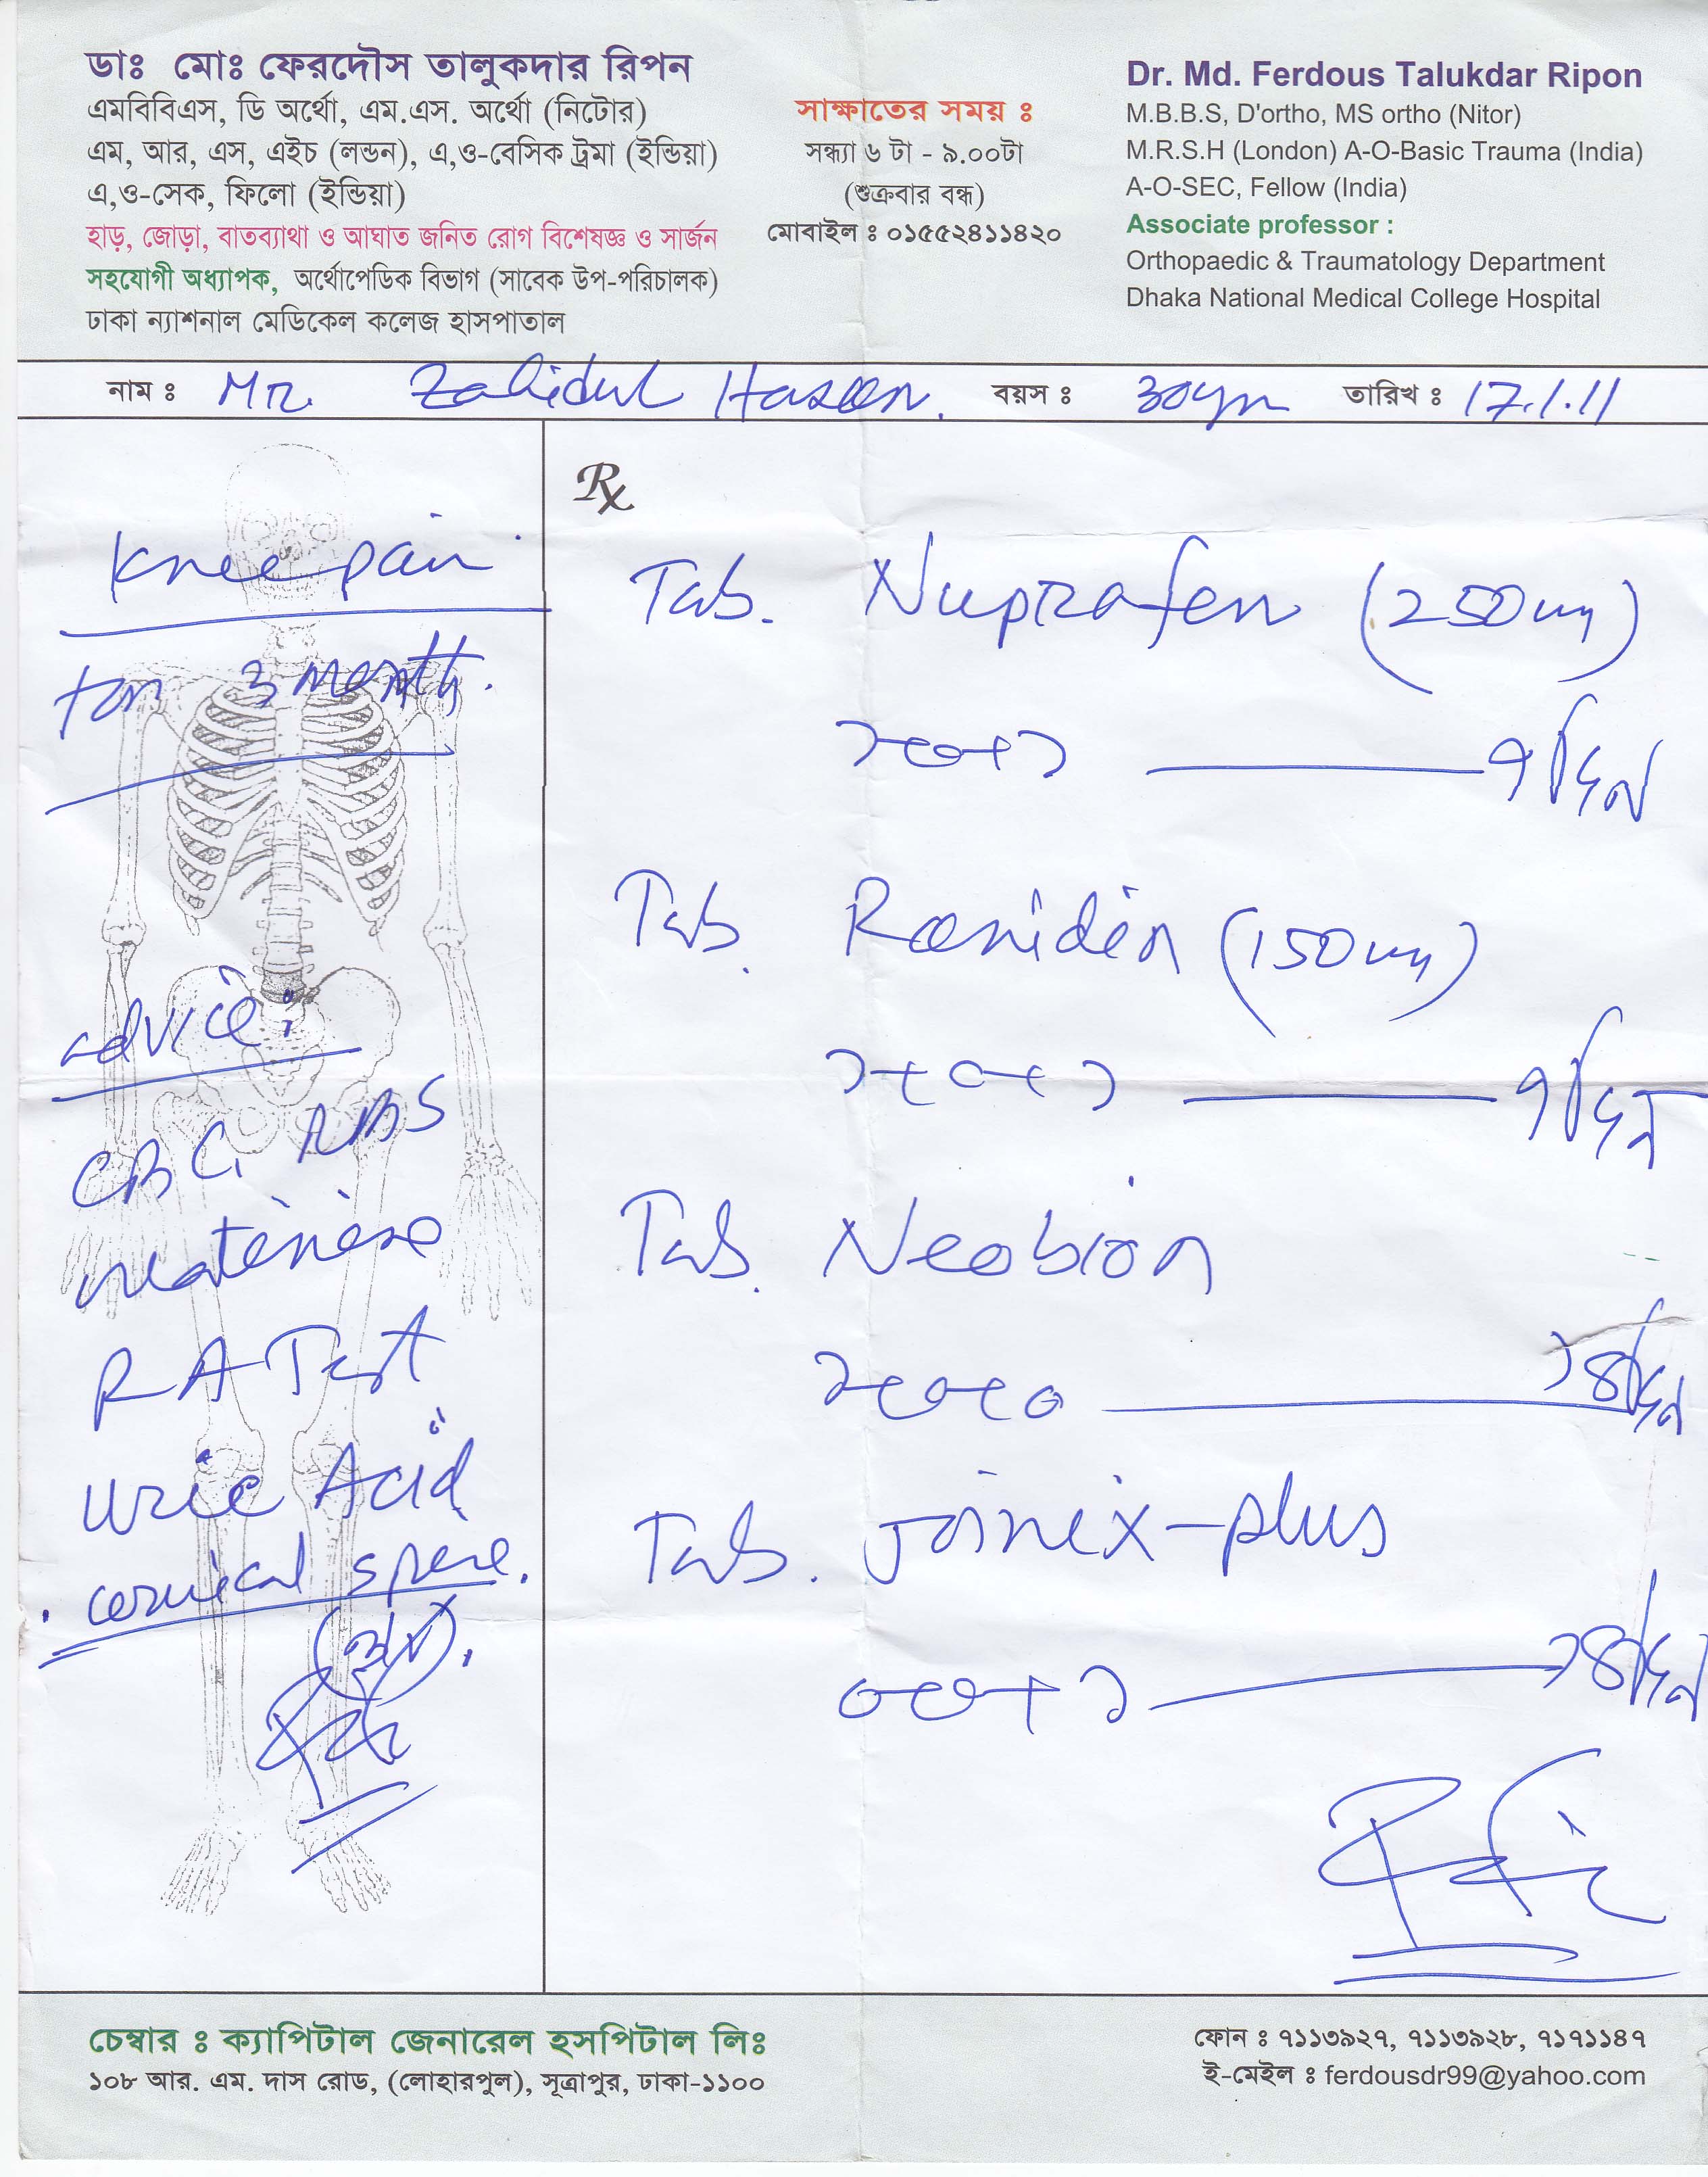 ডাঃ মোঃ ফেরদৌস তালুকদার রিপন
এমবিবিএস, ডি অর্থো, এম.এস. অর্থো (নিটোর)
এম, আর, এস, এইচ (লন্ডন), এ,ও-বেসিক ট্রমা (ইন্ডিয়া)
এ,ও-সেক, ফিলো (ইন্ডিয়া)
হাড়, জোড়া, বাতব্যাথা ও আঘাত জনিত রোগ বিশেষজ্ঞ ও সার্জন
সহযোগী অধ্যাপক, অর্থোপেডিক বিভাগ (সাবেক উপ-পরিচালক)
ঢাকা ন্যাশনাল মেডিকেল কলেজ হাসপাতাল
সাক্ষাতের সময় ঃ
সন্ধ্যা ৬ টা - ৯.০০টা
(শুক্রবার বন্ধ)
মোবাইল ঃ ০১৫৫২৪১১৪২০
Dr. Md. Ferdous Talukdar Ripon
M.B.B.S, D'ortho, MS ortho (Nitor)
M.R.S.H (London) A-O-Basic Trauma (India)
A-O-SEC, Fellow (India)
Associate professor :
Orthopaedic & Traumatology Department
Dhaka National Medical College Hospital
নাম ঃ Mr. Zahidul Hasan. বয়স ঃ 30yrs তারিখ ঃ 17.1.11
Knee pain
for 3 month.
advice:
CBC, RBS
RA Test
Uric Acid
cervical spine.
Rx
Tab. Nuprafen (250mg)
১+০+১ — ৭ দিন
Tab. Ranidin (150mg)
১+০+১ — ৭ দিন
Tab. Neobion
১+০+০ — ১৪ দিন
Tab. Joinix-plus
০+০+১ — ১৪ দিন
চেম্বার ঃ ক্যাপিটাল জেনারেল হসপিটাল লিঃ
১০৮ আর. এম. দাস রোড, (লোহারপুল), সূত্রাপুর, ঢাকা-১১০০
ফোন ঃ ৭১১৩৯২৭, ৭১১৩৯২৮, ৭১৭১১৪৭
ই-মেইল ঃ ferdousdr99@yahoo.com